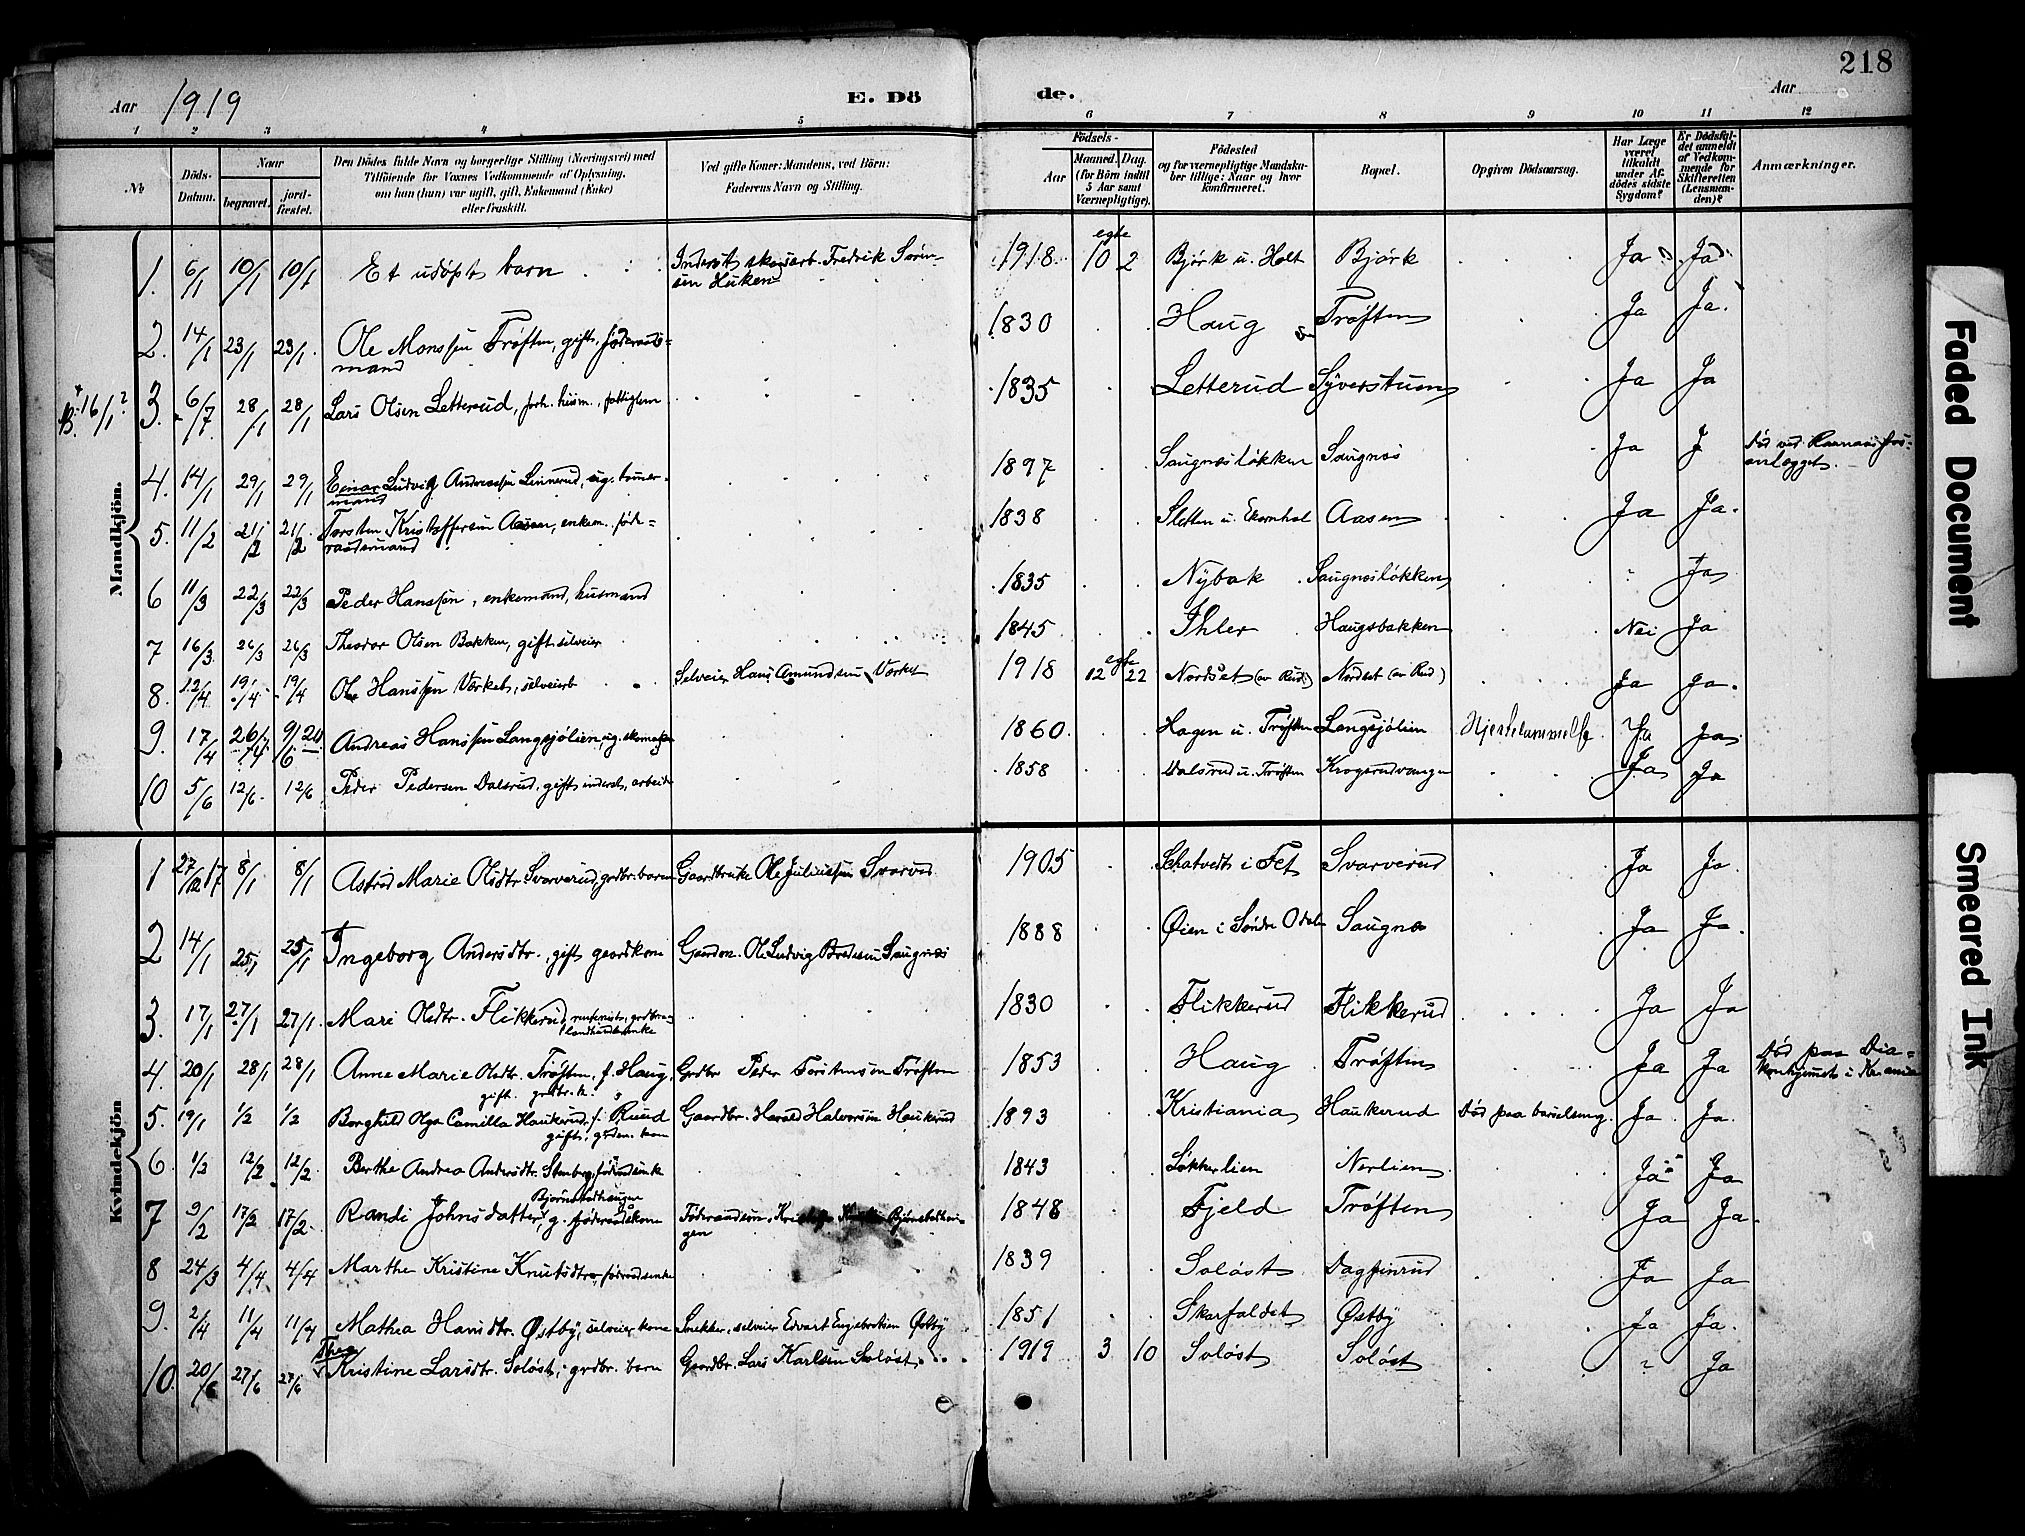 218
Aar 1919 E. Dö de. Aar
1 2 3 4 5 6 7 8 9 10 11 12
No
Döds-
Datum.
Naar
begravet.
jord-
fæstet.
Den Dödes fulde Navn og borgerlige Stilling (Næringsvei) med
Tilföiende for Voxnes Vedkommende af Oplysning,
om han (hun) var ugift, gift, Enkemand (Enke)
eller fraskilt.
Ved gifte Koner: Mandens, ved Börn:
Faderens Navn og Stilling.
Födsels-
Aar
Maaned. Dag.
(for Börn indtil
5 Aar samt
Værnepligtige).
Födested
og for værnepligtige Mandska-
ber tillige: Naar og hvor
konfirmeret.
Bopæl.
Opgiven Dödsaarsag.
Har Læge
været
tilkaldt
under Af-
dödes sidste
Sygdom?
Er Dödsfal-
det anmeldt
af Vedkom-
mende for
Skifteretten
(Lensman-
den)?
Anmærkninger.
Mandkjön.
1. 6/1 10/1 10/1 Et udøpt barn Inderst skogsarb. Fredrik Sørin- 1918 egte 10 2 Bjørk u. Holt Bjørk Ja Ja
sen Huken
2. 14/1 23/1 23/1 Ole Monssen Trøften, gift, føderaads- 1830 Haug Trøften Ja Ja.
mand
16/1? 3. 6/7 28/1 28/1 Lars Olsen Letterud, forh. husm., fattiglem 1835 Letterud Syverstuen Ja Ja
4. 14/1 29/1 29/1 Einar Ludvig Andreassen Linnerud, ug. tømer- 1897 Saugnesløkken Saugnes Ja J Død ved Raanaasfos-
mand anlægget.
5. 11/2 21/2 21/2 Torsten Kristoffersen Aasen, enkem. føde- 1838 Sletten u. Ekornhol Aasen Ja Ja.
raadsmand
6 11/3 22/3 22/3 Peder Hanssen, enkemand, husmand 1835 Nybak Saugnesløkken Ja
7 16/3 26/3 26/3 Theodor Olsen Bakken, gift selveier 1845 Ihler Haugsbakken Nei Ja
8. 12/4 19/4 19/4 Ole Hanssen Værket, selveierb Selveier Hans Amundsen Værket 1918 egte 12 22 Nordset (av Rud) Nordset (av Rud) Ja Ja.
9. 17/4 26/4 9/6 20 Andreas Hanssen Langsjølien, ug. skomager 1860 Hagen u. Trøften Langsjølien Hjertelammelse Ja Ja
10 5/6 12/6 12/6 Peder Pedersen Dalsrud, gift inderst, arbeider 1858 Dalsrud u. Trøften Krogsrudvangen Ja Ja
Kvindekjön
1 27/12 17 8/1 8/1 Astrid Marie Olsdtr. Svarverud, grdbr. barn Gaardbruker Ole Juliussen Svarverud 1905 Schatvedt i Fet Svarverud Ja Ja
2 14/1 25/1 25/1 Ingeborg Andersdtr., gift gaardkone Gaardm. Ole Ludvig Bredesen Saugnes 1888 Øien i Søndre Odalen Saugnes Ja Ja.
3. 17/1 27/1 27/1 Mari Olsdtr. Flikkerud, 1830 Flikkerud Flikkerud Ja Ja
4. 20/1 28/1 28/1 Anne Marie Olsdtr. Trøften, f. Haug, Grdbr Peder Torstensen Trøften 1853 Haug Trøften Ja Ja Død paa Dia-
gift grdbr. k. konhjemmet i Kr.ania
5. 19/1 1/2 1/2 Borghild Olga Camilla Haukerud f. Ruud Gaardbr. Harald Halvorsen Haukerud 1893 Kristiania Haukerud Død paa barselseng. Ja Ja.
gift, grdm. kone
6. 1/2 12/2 12/2 Berthe Andrea Andersdtr. Stenberg, føderaadsenke 1843 Løkkerlien Nerlien Ja Ja
Bjørnstadhaugen
7 9/2 17/2 17/2 Randi Johnsdatter, g. føderaadskone Føderaadsm. Kristoffer Bjørnstadhau- 1848 Fjeld Trøften Ja Ja.
gen
8 24/3 4/4 4/4 Marthe Kristine Knutsdtr, føderaadsenke 1839 Soløst Dagfinrud Ja Ja
9. 2/4 11/4 11/4 Mathea Hansdtr. Østby, selveier kone Snekker, selveier Edvart Engebretsen Østby 1851 Skarfaldet Østby Ja Ja.
Thea
10. 20/6 27/6 27/6 Kristine Larsdtr. Soløst, grdbr. barn Gaardbr. Lars Karlsen Soløst 1919 3 10 Soløst Soløst ? Ja
Faded Document
Smeared Ink